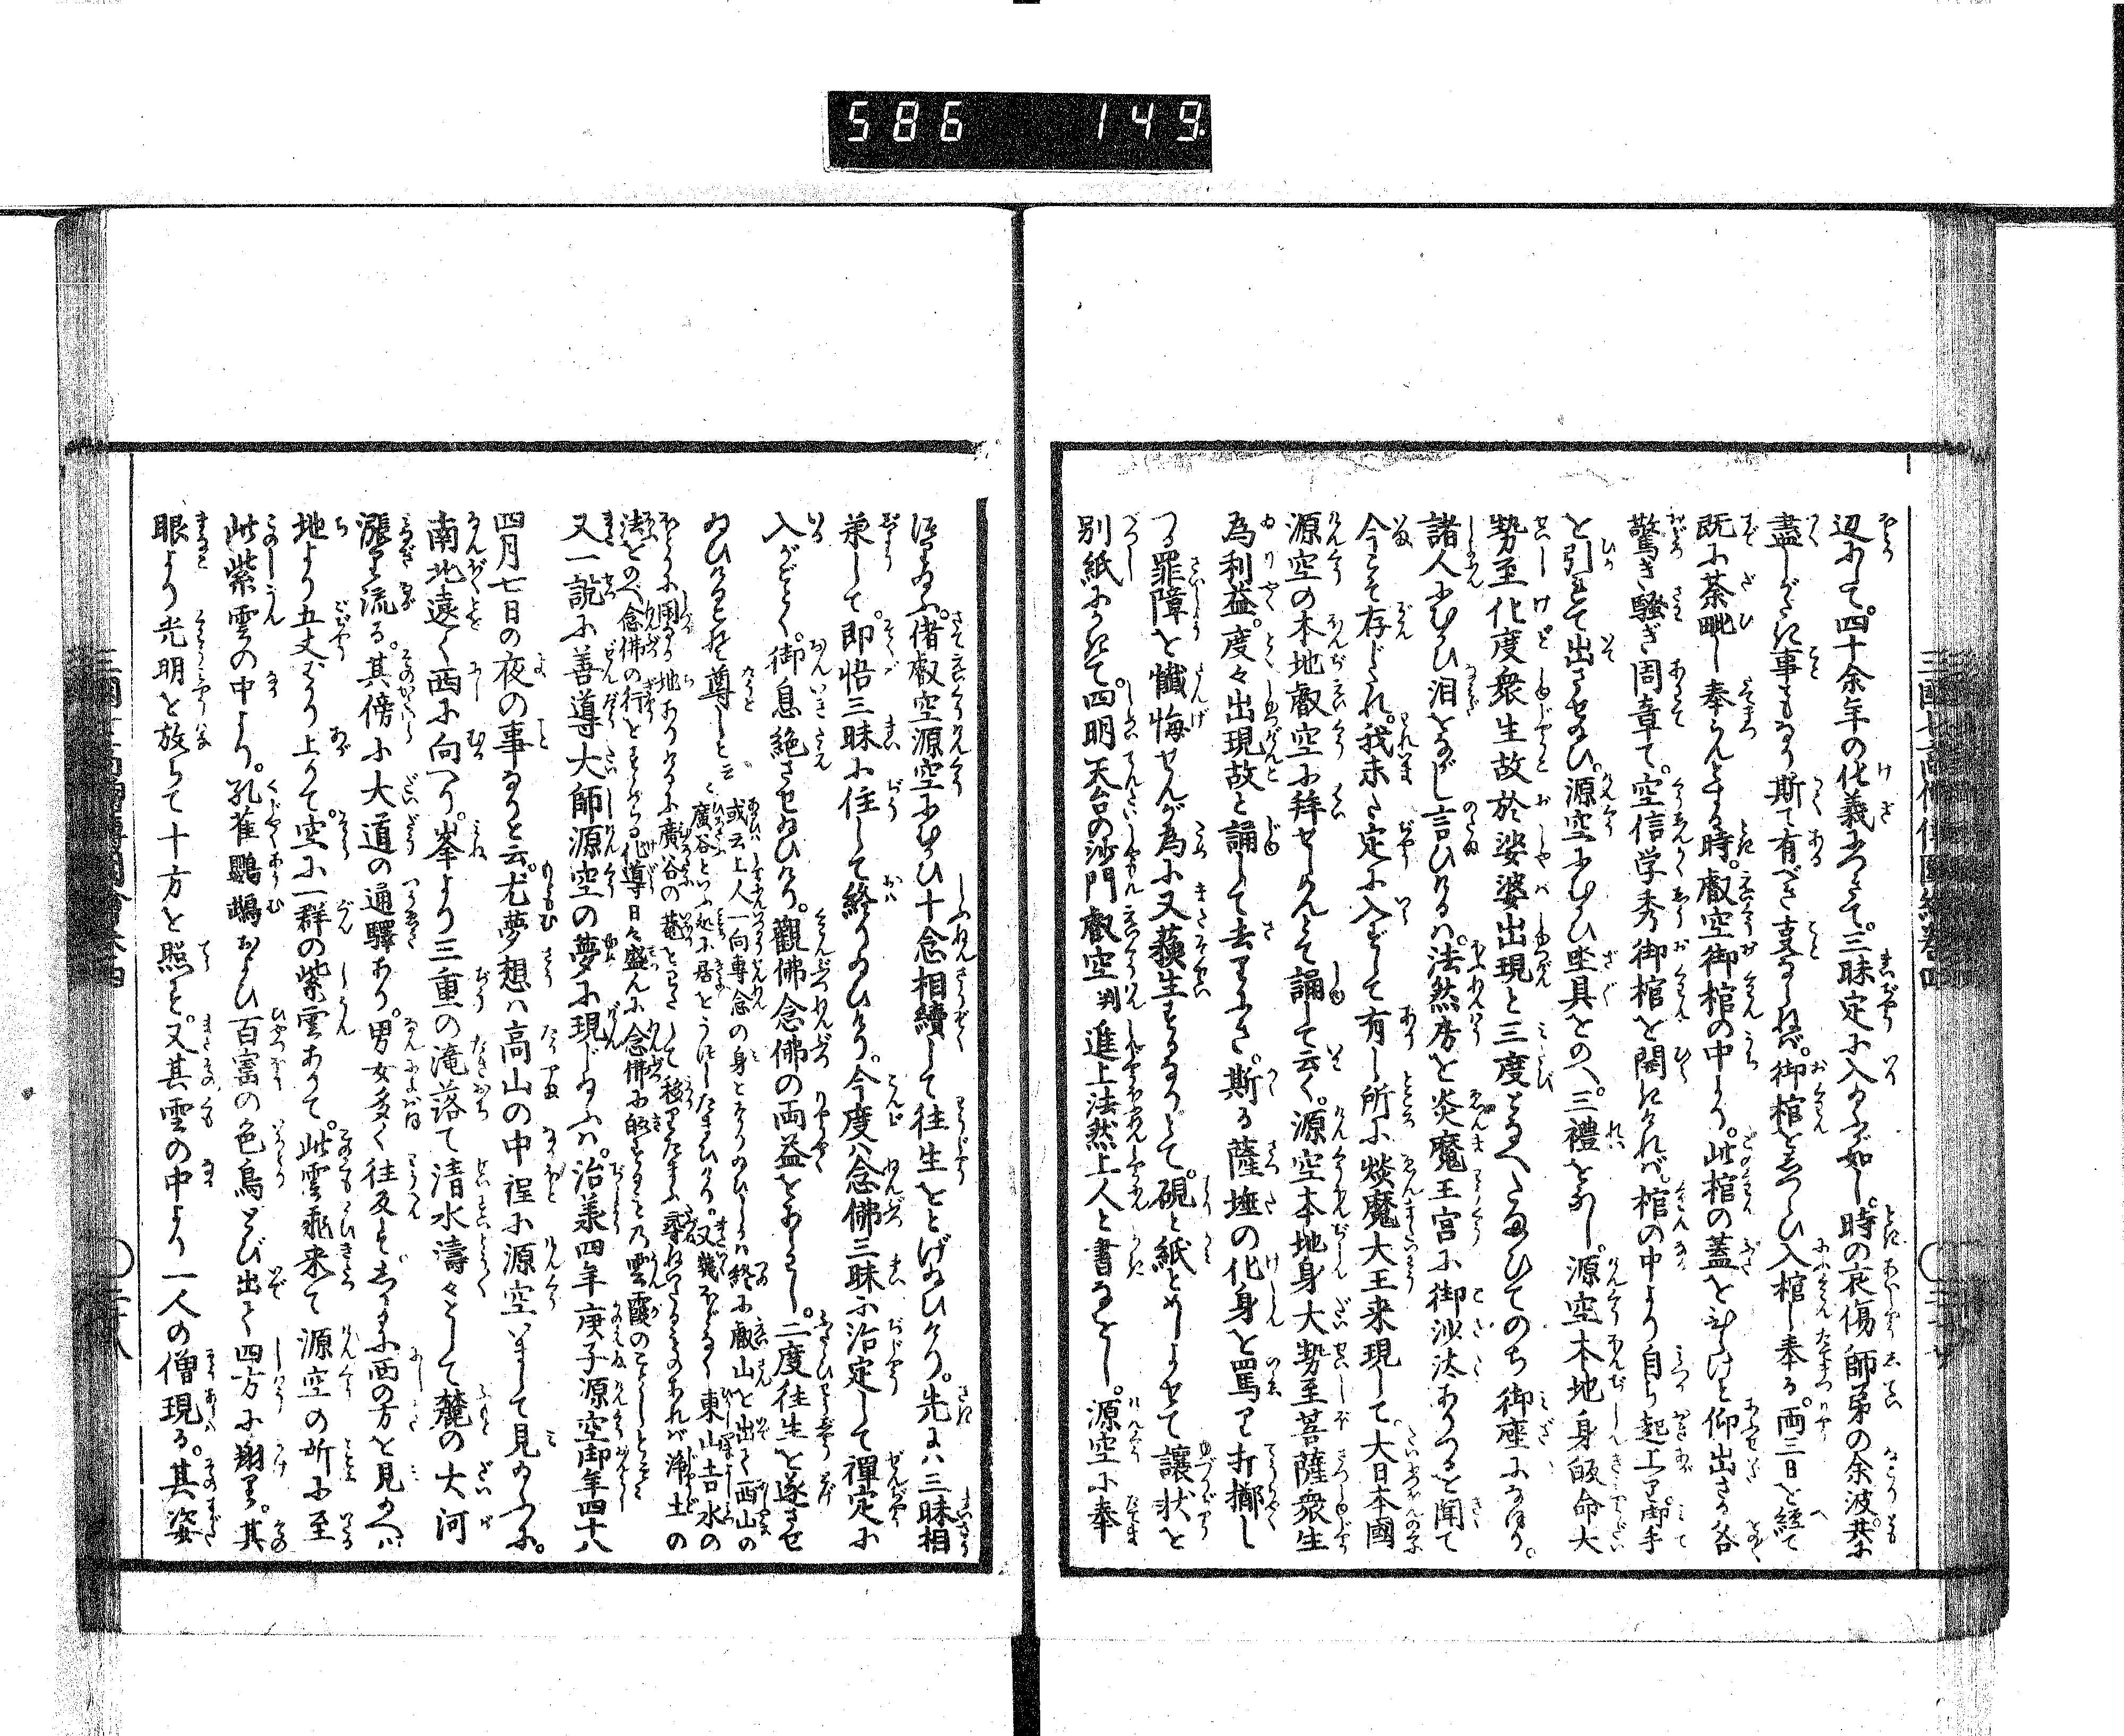 586 149.
三國七高僧傳圖繪巻四
辺にて。四十余年の化義ふつきて。三昧定に入るが如し。時の哀傷師弟の余波。共に
盡しがたき事もなり斯て有べき支ならねば。御棺をしつらひ入棺し奉る。両三日を経て
既に荼毗し奉らんとする時。叡空御棺の中より。此棺の蓋をひらけと仰出さる各
驚き騒ぎ周章て。空信学秀御棺を開きければ。棺の中より自ら起上り御手
を引れて出させ給ひ。源空にむかひ坐具をのべ。三禮をなし。源空本地身皈命大
勢至化度衆生故於娑婆出現と三度となへたまひてのち御座になほり。
諸人にむかひ泪をながし言ひけるハ。法然房を炎魔王宮に御沙汰ありつると聞て
今こそ存じたれ。我未だ定に入ずして有し所に焰魔大王来現して。大日本國
源空の本地叡空に拜せしめんとて誦して云く。源空本地身大勢至菩薩衆生
為利益。度々出現故と誦して去りにき。斯る薩埵の化身を罵り打擲し
つる罪障を懺悔せんが為に又蘇生するなりとて。硯と紙とめしよせて讓状を
別紙にかきて。四明天台の沙門叡空判進上法然上人と書るとし。源空に奉
渡給ふ。偖叡空源空にむかひ十念相續して往生をとげ給ひけり。先には三昧相
兼して。即悟三昧に住して終り給ひけり。今度ハ念佛三昧に治定して禪定に
入がごとく。御息絶させ給ひけり。觀佛念佛の両益をあらはし。二度往生を遂させ
給ひけるこそ尊しと云々
或云上人一向專念の身となり給ひしかハ終に叡山を出て西山の
廣谷といふ処に居をうつしたまひけり。又幾ほどなく東山吉水の
ほとりに閑なる地ありけるに廣谷の菴をわたして移りたまふ尋ねいたるものあれバ浄土の
法をのべ念佛の行をすゝめらる化導日々盛んに念佛に皈するもの雲霞のごとしとぞ
又一説に善導大師源空の夢に現じ給ふハ。治承四年庚子源空御年四十八
四月七日の夜の事なりと云。尤夢想ハ高山の中程に源空いまして見給ふに。
南北遠く西に向へり。峯より三重の滝落て清水濤々として麓の大河
漲り流る。其傍に大道の通驛あり。男女多く往反をす。しかるに西の方を見給へバ
地より五丈ばかり上りて。空に一群の紫雲ありて。此雲飛来て源空の所に至
此紫雲の中より。孔雀鸚鵡および百寳の色鳥とび出て四方に翔り。其
眼より光明を放ちて十方を照す。又其雲の中より一人の僧現る。其姿
三國七高僧傳圖會巻四